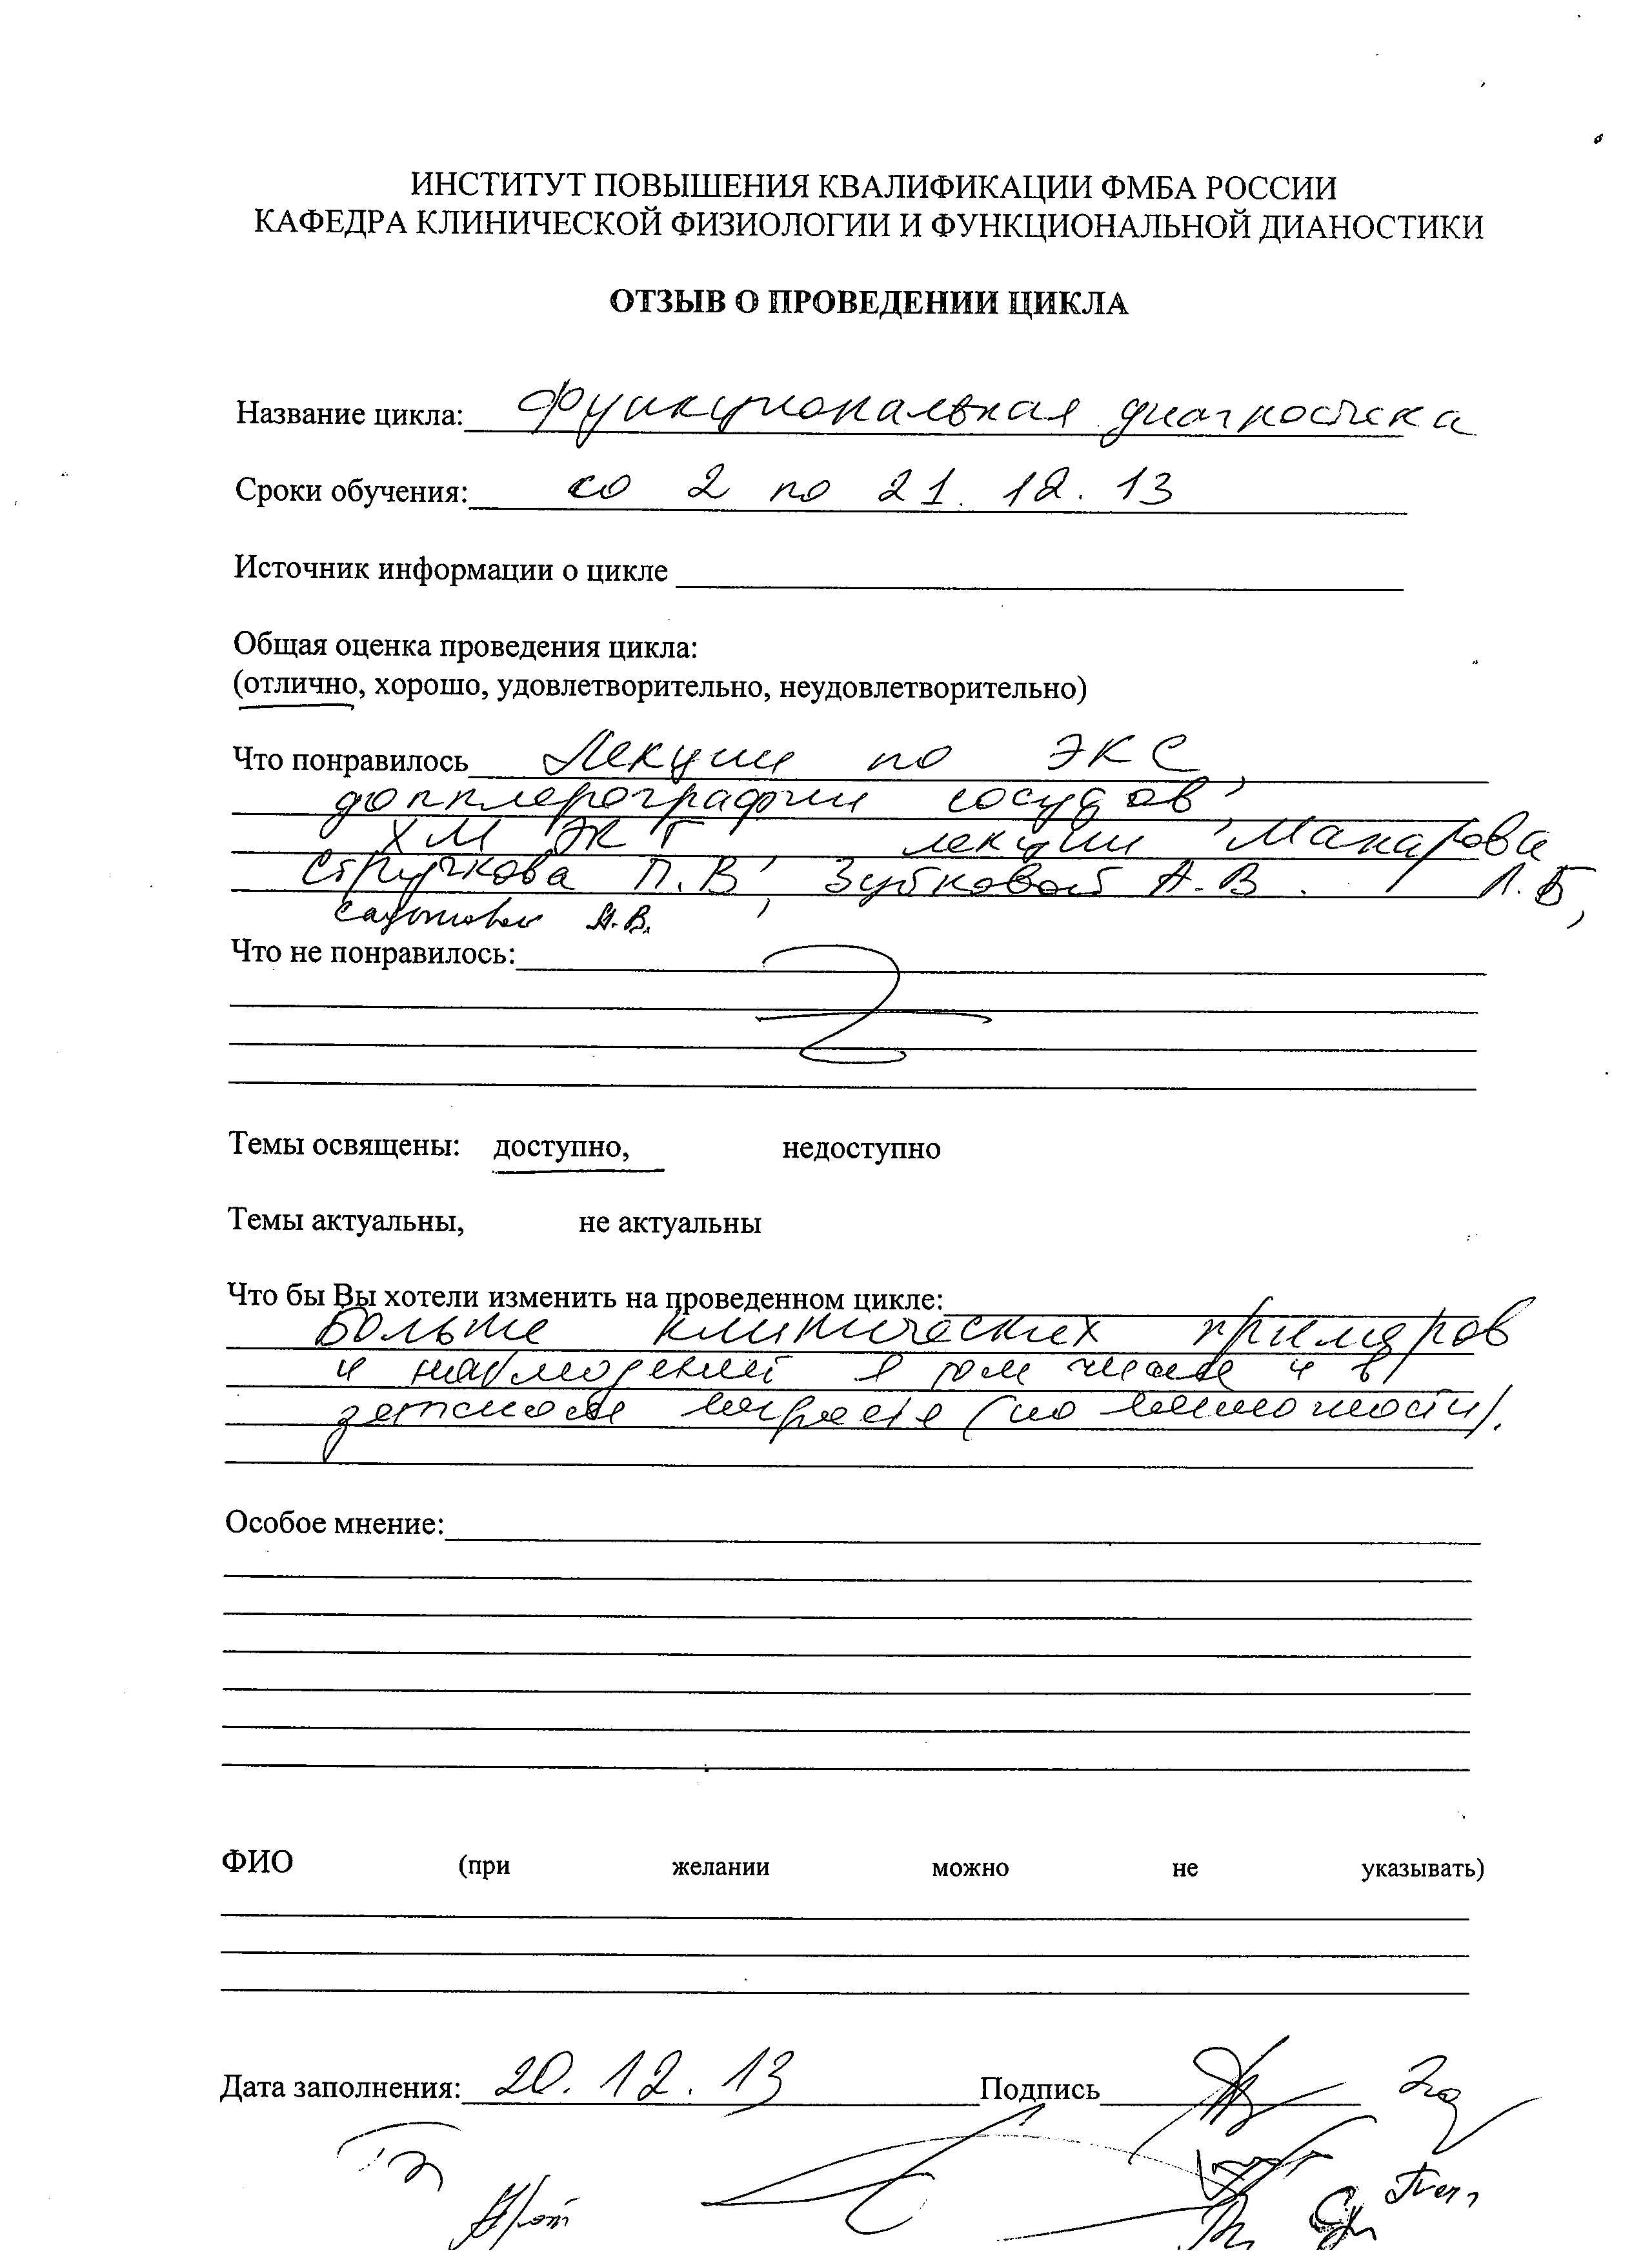 ИНСТИТУТ ПОВЫШЕНИЯ КВАЛИФИКАЦИИ ФМБА РОССИИ
КАФЕДРА КЛИНИЧЕСКОЙ ФИЗИОЛОГИИ И ФУНКЦИОНАЛЬНОЙ ДИАНОСТИКИ
ОТЗЫВ О ПРОВЕДЕНИИ ЦИКЛА
Название цикла: Функциональная диагностика
Сроки обучения: со 2 по 21.12.13
Источник информации о цикле
Общая оценка проведения цикла:
(отлично, хорошо, удовлетворительно, неудовлетворительно)
Что понравилось Лекции по ЭКС,
допплерографии сосудов,
ХМ ЭКГ лекции Макарова
Стручкова П.В, Зубковой А.В. Л.Б,
А.В.
Что не понравилось:
Темы освящены: доступно, недоступно
Темы актуальны, не актуальны
Что бы Вы хотели изменить на проведенном цикле:
Больше клинических примеров
и наблюдений в том числе и в
детском возрасте (по возможности).
Особое мнение:
ФИО (при желании можно не указывать)
Дата заполнения: 20.12.13 Подпись